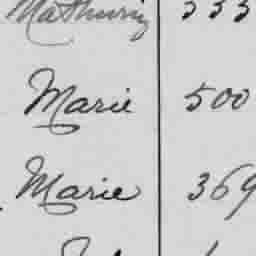 Mathurin 533
Marie 500
Marie 369